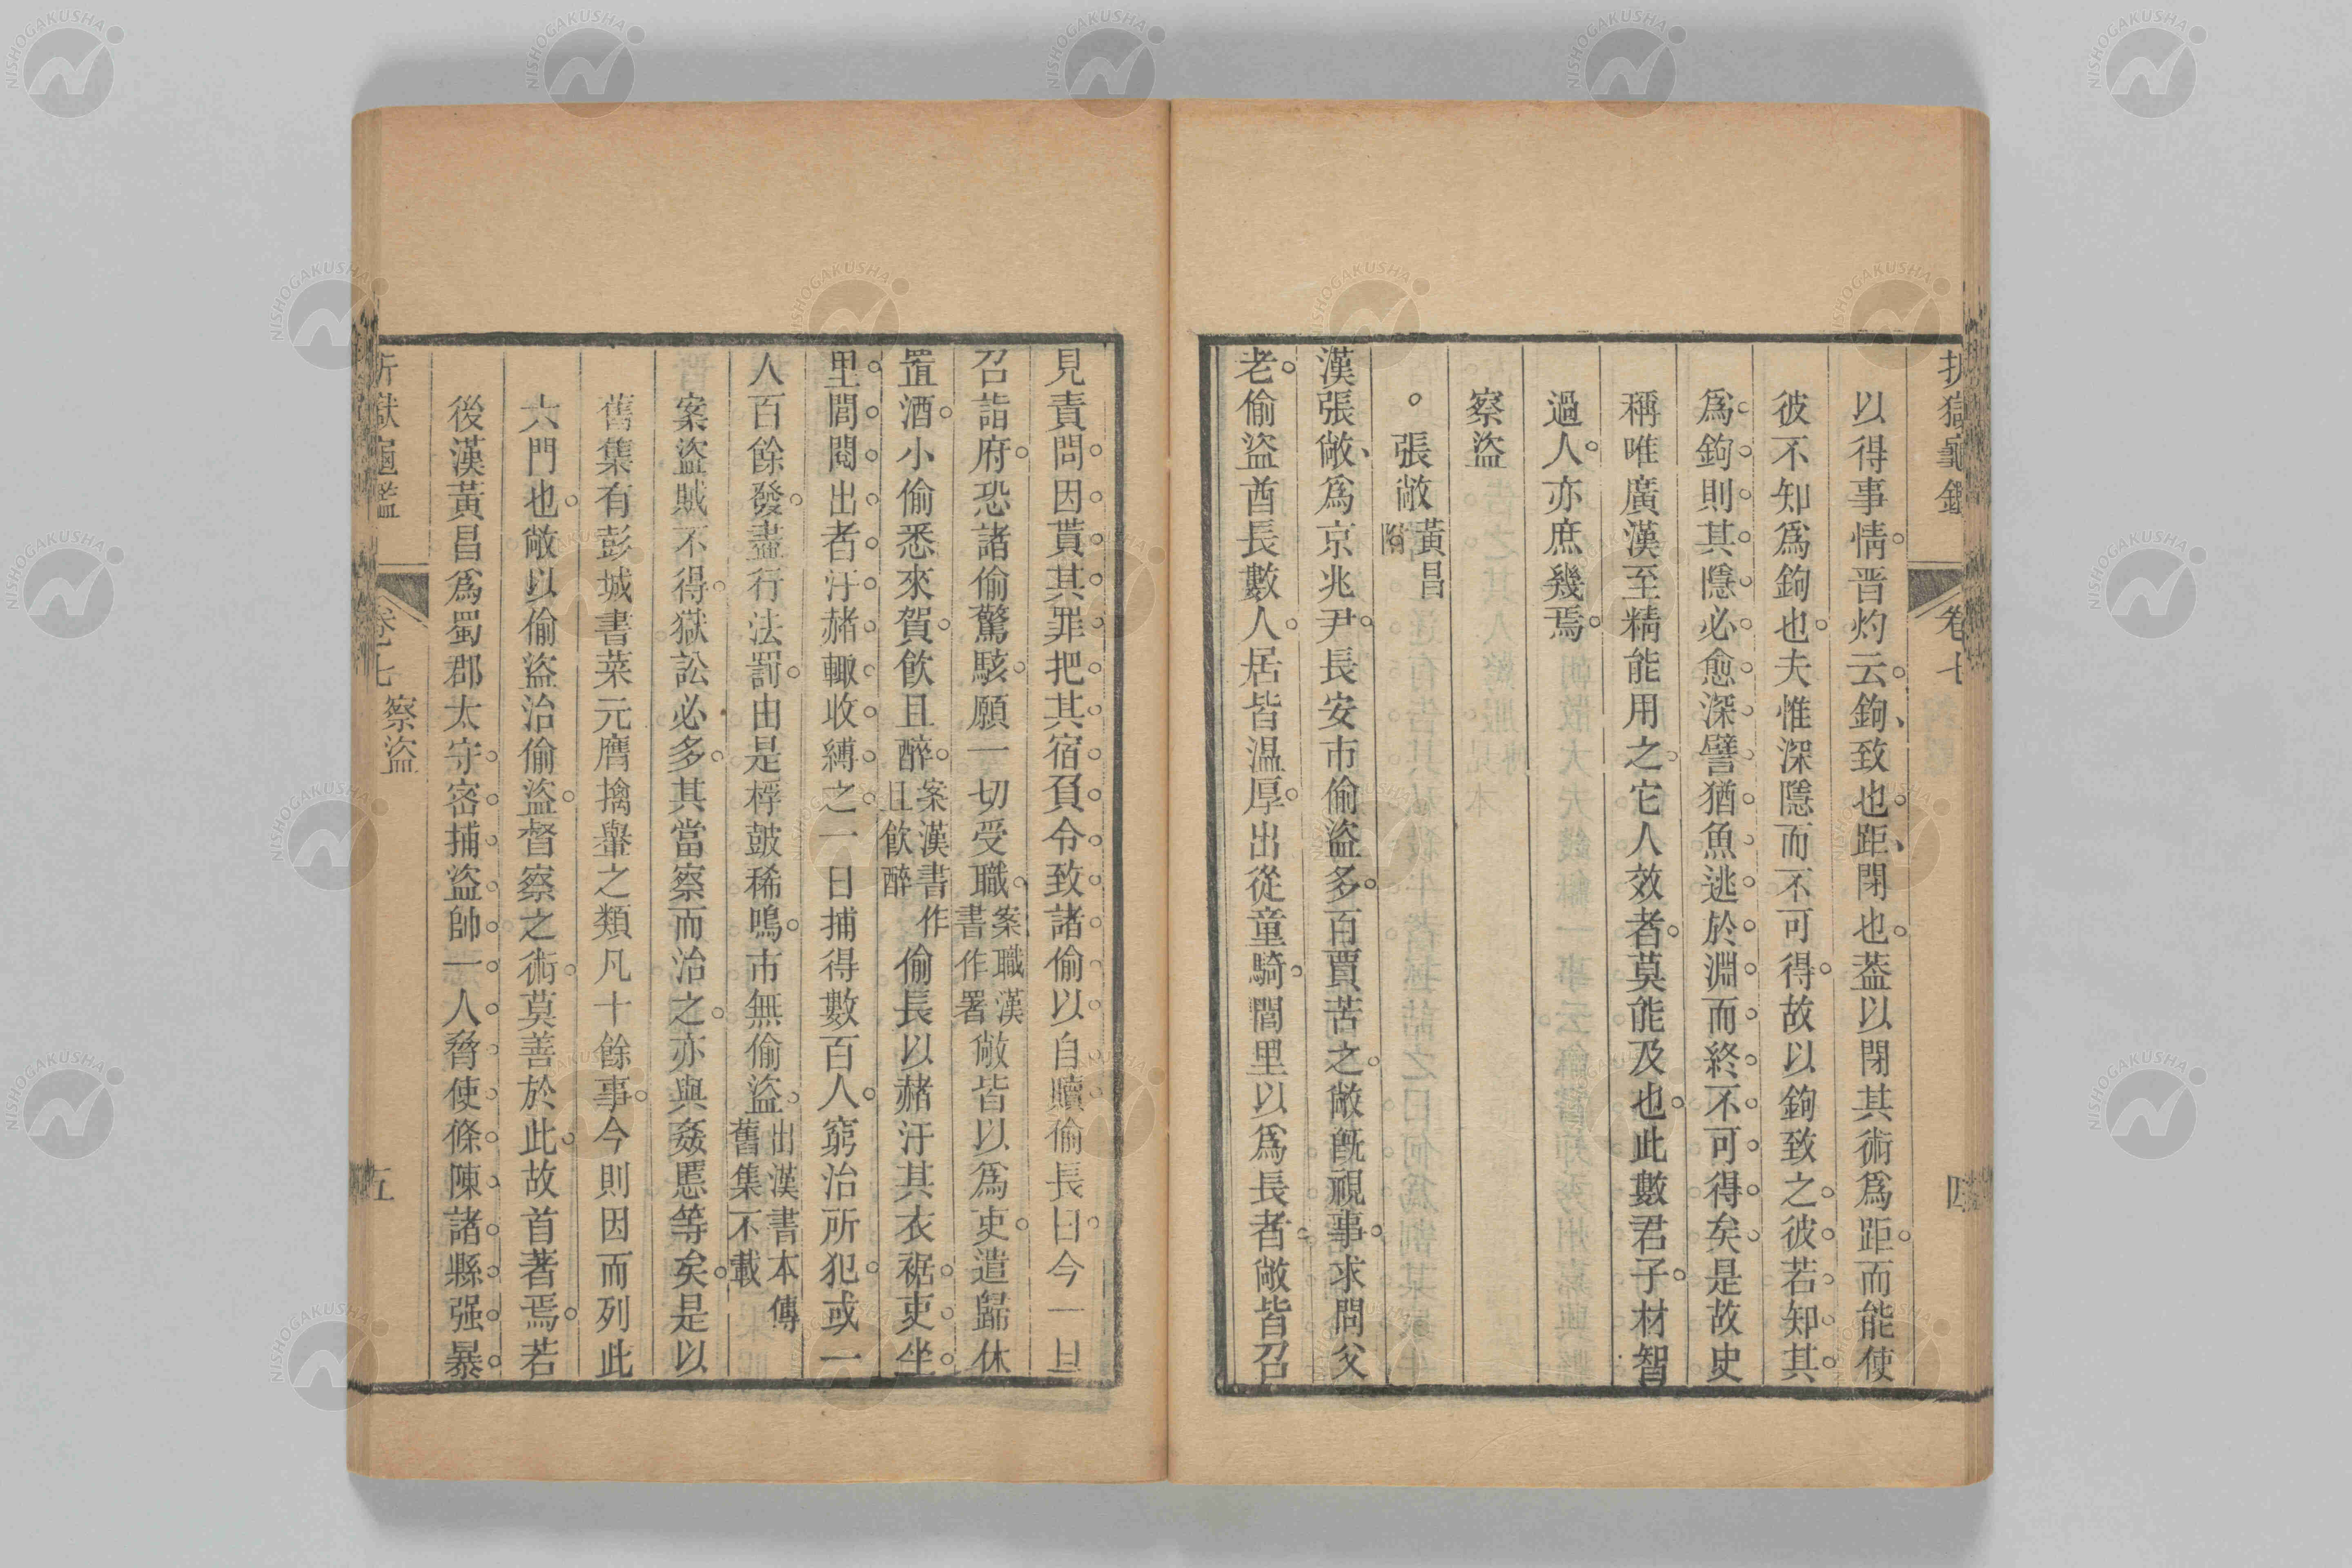 折獄龜鑑 卷七 四
以得事情晋灼云鉤致也距閉也葢以閉其術爲距而能使
彼不知爲鉤也夫惟深隱而不可得故以鉤致之彼若知其
爲鉤則其隱必愈深譬猶魚逃於淵而終不可得矣是故史
稱唯廣漢至精能用之它人效者莫能及也此數君子材智
過人亦庶幾焉
察盜
。張敞黃昌附
漢張敞爲京兆尹長安市偷盜多百賈苦之敞旣視事求問父
老偷盜酋長數人居皆温厚出從童騎閭里以爲長者敞皆召
見責問因貰其罪把其宿負令致諸偷以自贖偷長曰今一旦
召詣府恐諸偷驚駭願一切受職案職漢書作署敞皆以爲吏遣歸休
置酒小偷悉來賀飲且醉案漢書作且飲醉偷長以赭汙其衣裾吏坐
里閭閱出者汙赭輙收縛之一日捕得數百人窮治所犯或一
人百餘發盡行法罰由是桴鼓稀鳴市無偷盜出漢書本傳舊集不載
案盜賊不得獄訟必多其當察而治之亦與姦慝等矣是以
舊集有彭城書菜元膺擒轝之類凡十餘事今則因而列此
六門也敞以偷盜治偷盜督察之術莫善於此故首著焉若
後漢黃昌爲蜀郡太守密捕盜帥一人脅使條陳諸縣强暴
折獄龜鑑 卷七 察盜 五
NISHOGAKUSHA